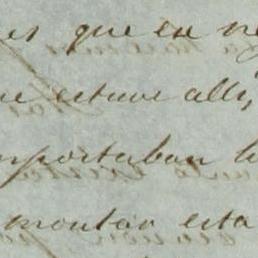 es que en ne
ue estuve alli,
mportaban l
montar esta